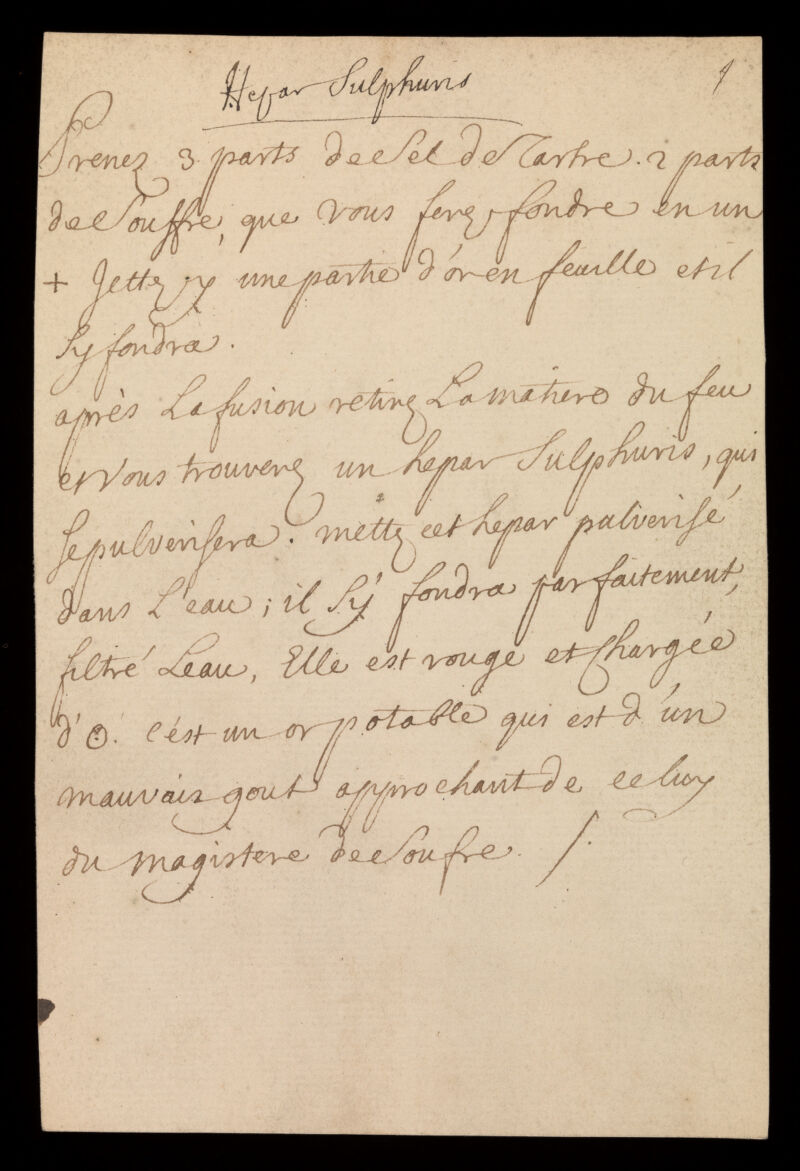 Hepar Sulphuris
1
Prenez 3 parts de Sel de Tartre. 2 parts
de Souffre, que vous ferez fondre en un
+ Jettez y une partie d'or en feuille et il
sy fondra.
après La fusion retirez La matiere du feu
et Vous trouverez un hepar Sulphuris, qui
se pulverisera. mettez cet hepar pulverisé
dans L'eau; il Sy fondra parfaitement,
filtré Leau, Elle est rouge et Chargée
d'☉. c'ést un or potable qui est d'un
mauvais gout approchant de celuy
du magistere de Soufre. /.